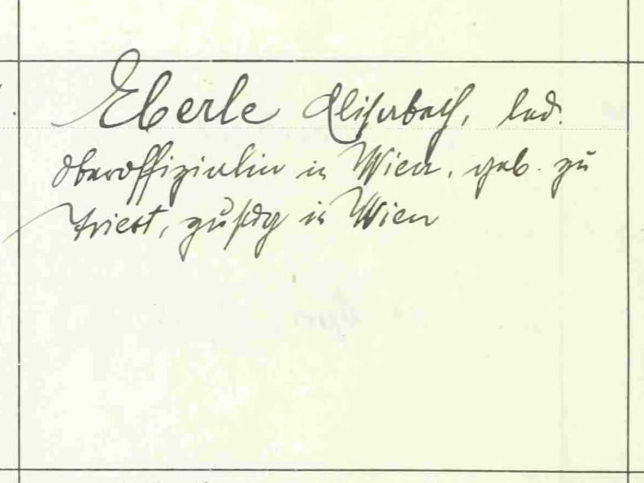 Eberle Elisabeth, led.
Oberoffizialin in Wien, geb. zu
Triest, zustdg in Wien